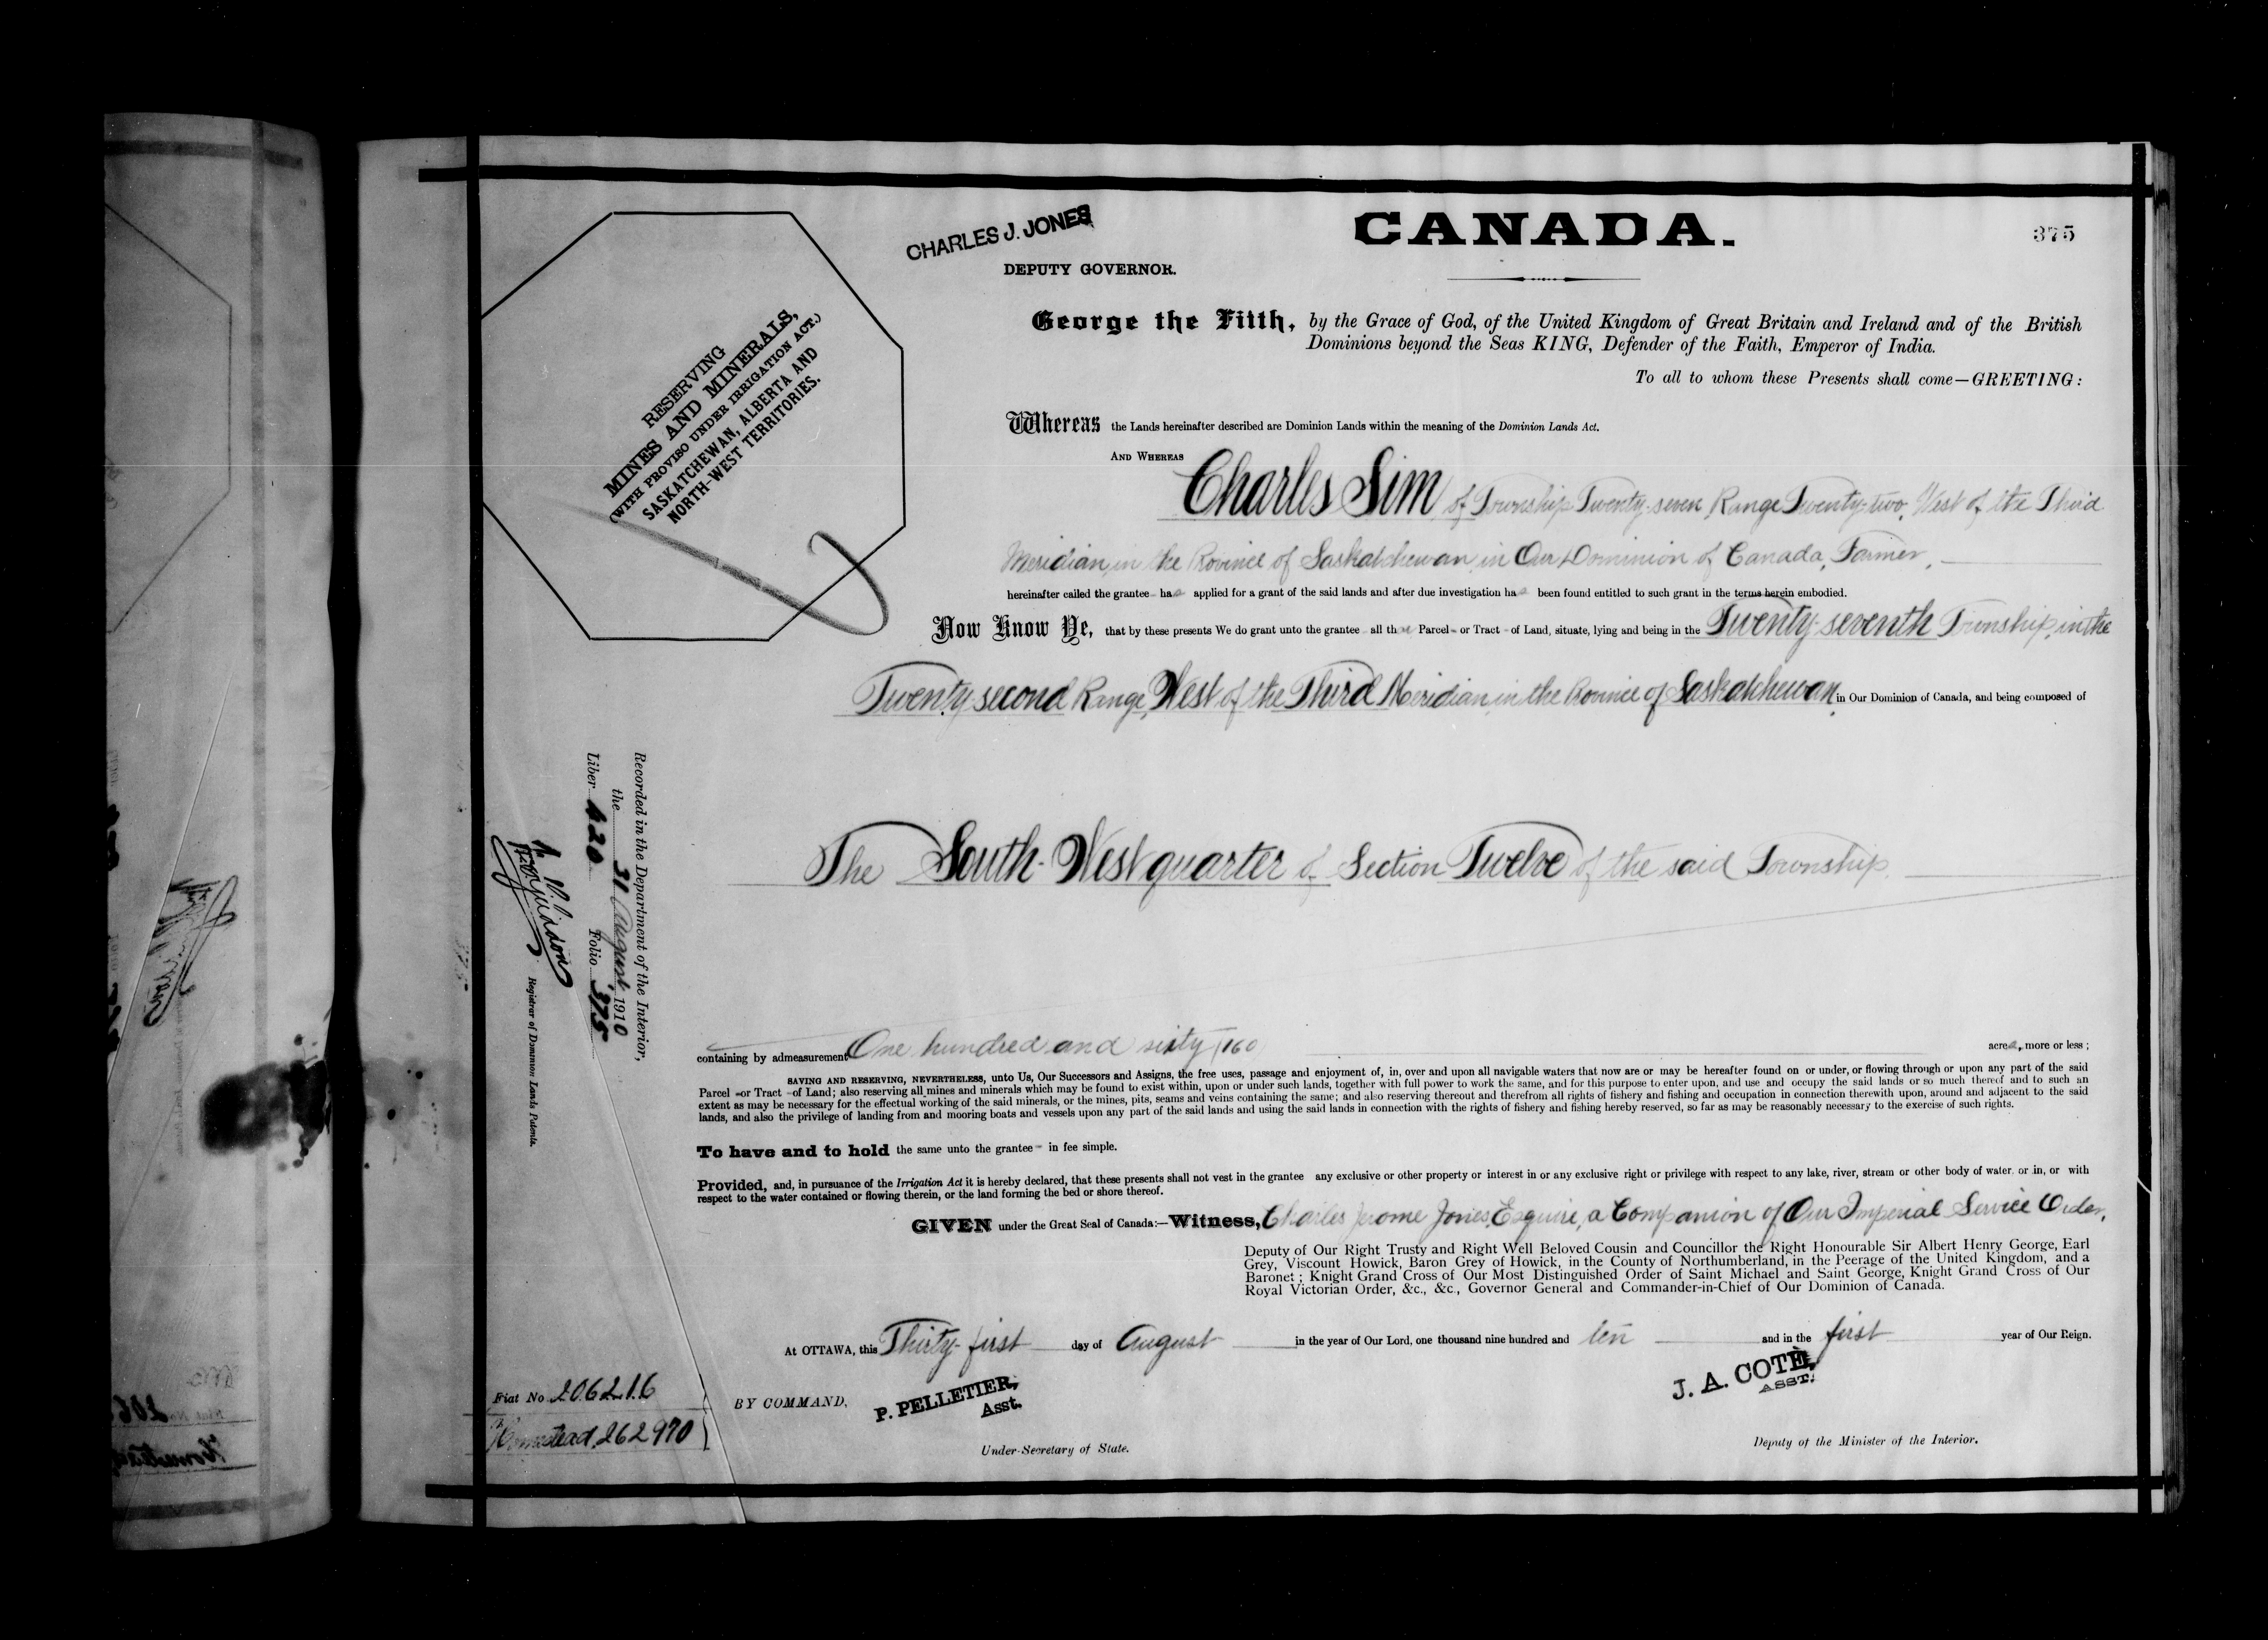 CHARLES J. JONES
DEPUTY GOVERNOR.
CANADA.
375
RESERVING
MINES AND MINERALS,
(WITH PROVISO UNDER IRRIGATION ACT.)
SASKATCHEWAN, ALBERTA AND
NORTH-WEST TERRITORIES.
George the Fifth, by the Grace of God, of the United Kingdom of Great Britain and Ireland and of the British
Dominions beyond the Seas KING, Defender of the Faith, Emperor of India.
To all to whom these Presents shall come—GREETING:
Whereas the Lands hereinafter described are Dominion Lands within the meaning of the Dominion Lands Act.
AND WHEREAS
Charles Sim of Township Twenty-seven Range Twenty-two, West of the Third
Meridian, in the Province of Saskatchewan, in Our Dominion of Canada, Farmer,
hereinafter called the grantee has applied for a grant of the said lands and after due investigation has been found entitled to such grant in the terms herein embodied.
Now Know Ye, that by these presents We do grant unto the grantee all that Parcel or Tract of Land, situate, lying and being in the Twenty-seventh Township, in the
Twenty-second Range, West of the Third Meridian, in the Province of Saskatchewan, in Our Dominion of Canada, and being composed of
The South-West quarter of Section Twelve of the said Township.
Recorded in the Department of the Interior,
the 31 August, 1910
Liber 420 Folio 375
Registrar of Dominion Lands Patents.
containing by admeasurement One hundred and sixty (160 acres, more or less;
SAVING AND RESERVING, NEVERTHELESS, unto Us, Our Successors and Assigns, the free uses, passage and enjoyment of, in, over and upon all navigable waters that now are or may be hereafter found on or under, or flowing through or upon any part of the said
Parcel or Tract of Land; also reserving all mines and minerals which may be found to exist within, upon or under such lands, together with full power to work the same, and for this purpose to enter upon, and use and occupy the said lands or so much thereof and to such an
extent as may be necessary for the effectual working of the said minerals, or the mines, pits, seams and veins containing the same; and also reserving thereout and therefrom all rights of fishery and fishing and occupation in connection therewith upon, around and adjacent to the said
lands, and also the privilege of landing from and mooring boats and vessels upon any part of the said lands and using the said lands in connection with the rights of fishery and fishing hereby reserved, so far as may be reasonably necessary to the exercise of such rights.
To have and to hold the same unto the grantee in fee simple.
Provided, and, in pursuance of the Irrigation Act it is hereby declared, that these presents shall not vest in the grantee any exclusive or other property or interest in or any exclusive right or privilege with respect to any lake, river, stream or other body of water. or in, or with
respect to the water contained or flowing therein, or the land forming the bed or shore thereof.
GIVEN under the Great Seal of Canada:—Witness, Charles Jerome Jones, Esquire, a Companion of Our Imperial Service Order,
Deputy of Our Right Trusty and Right Well Beloved Cousin and Councillor the Right Honourable Sir Albert Henry George, Earl
Grey, Viscount Howick, Baron Grey of Howick, in the County of Northumberland, in the Peerage of the United Kingdom, and a
Baronet; Knight Grand Cross of Our Most Distinguished Order of Saint Michael and Saint George, Knight Grand Cross of Our
Royal Victorian Order, &c., &c., Governor General and Commander-in-Chief of Our Dominion of Canada.
At OTTAWA, this Thirty-first day of August in the year of Our Lord, one thousand nine hundred and ten and in the first year of Our Reign.
Fiat No 206216
Homestead, 262970
BY COMMAND,
P. PELLETIER,
Asst.
Under-Secretary of State.
J. A. COTÉ,
ASST.
Deputy of the Minister of the Interior.